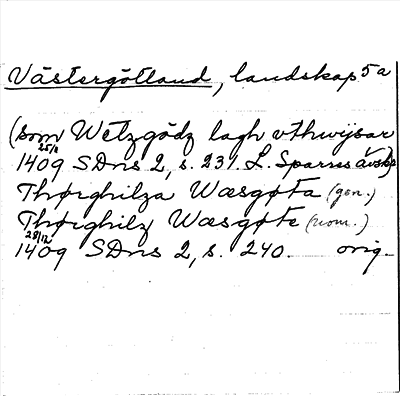 Västergötland, landskap 5a
(som Wetzgödz lagh vthwijsar
25/2
1409 SDns 2, s. 231. L. Sparres avskr)
Thørghilza Wæsgøta (gen.)
Thørghilz Wæsgøte (nom.)
28/12
1409 SDns 2, s. 240 orig.